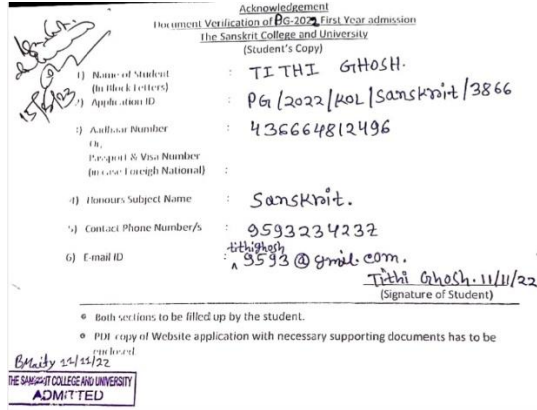 Acknowledgement
Document Verification of PG-2022 First Year admission
The Sanskrit College and University
(Student's Copy)
1) Name of Student : TITHI GHOSH.
(In Block Letters)
2) Application ID : PG/2022/KOL/Sanskrit/3866
15/5/23
3) Aadhaar Number : 436664812496
Or,
Passport & Visa Number
(in case Foreigh National) :
4) Honours Subject Name : Sanskrit.
5) Contact Phone Number/s : 9593234237
tithighosh
6) E-mail ID : ^ 9593@gmil.com.
Tithi Ghosh. 11/11/22
(Signature of Student)
Both sections to be filled up by the student.
PDF copy of Website application with necessary supporting documents has to be
enclosed.
BMaity 11/11/22
THE SANSKRIT COLLEGE AND UNIVERSITY
ADMITTED